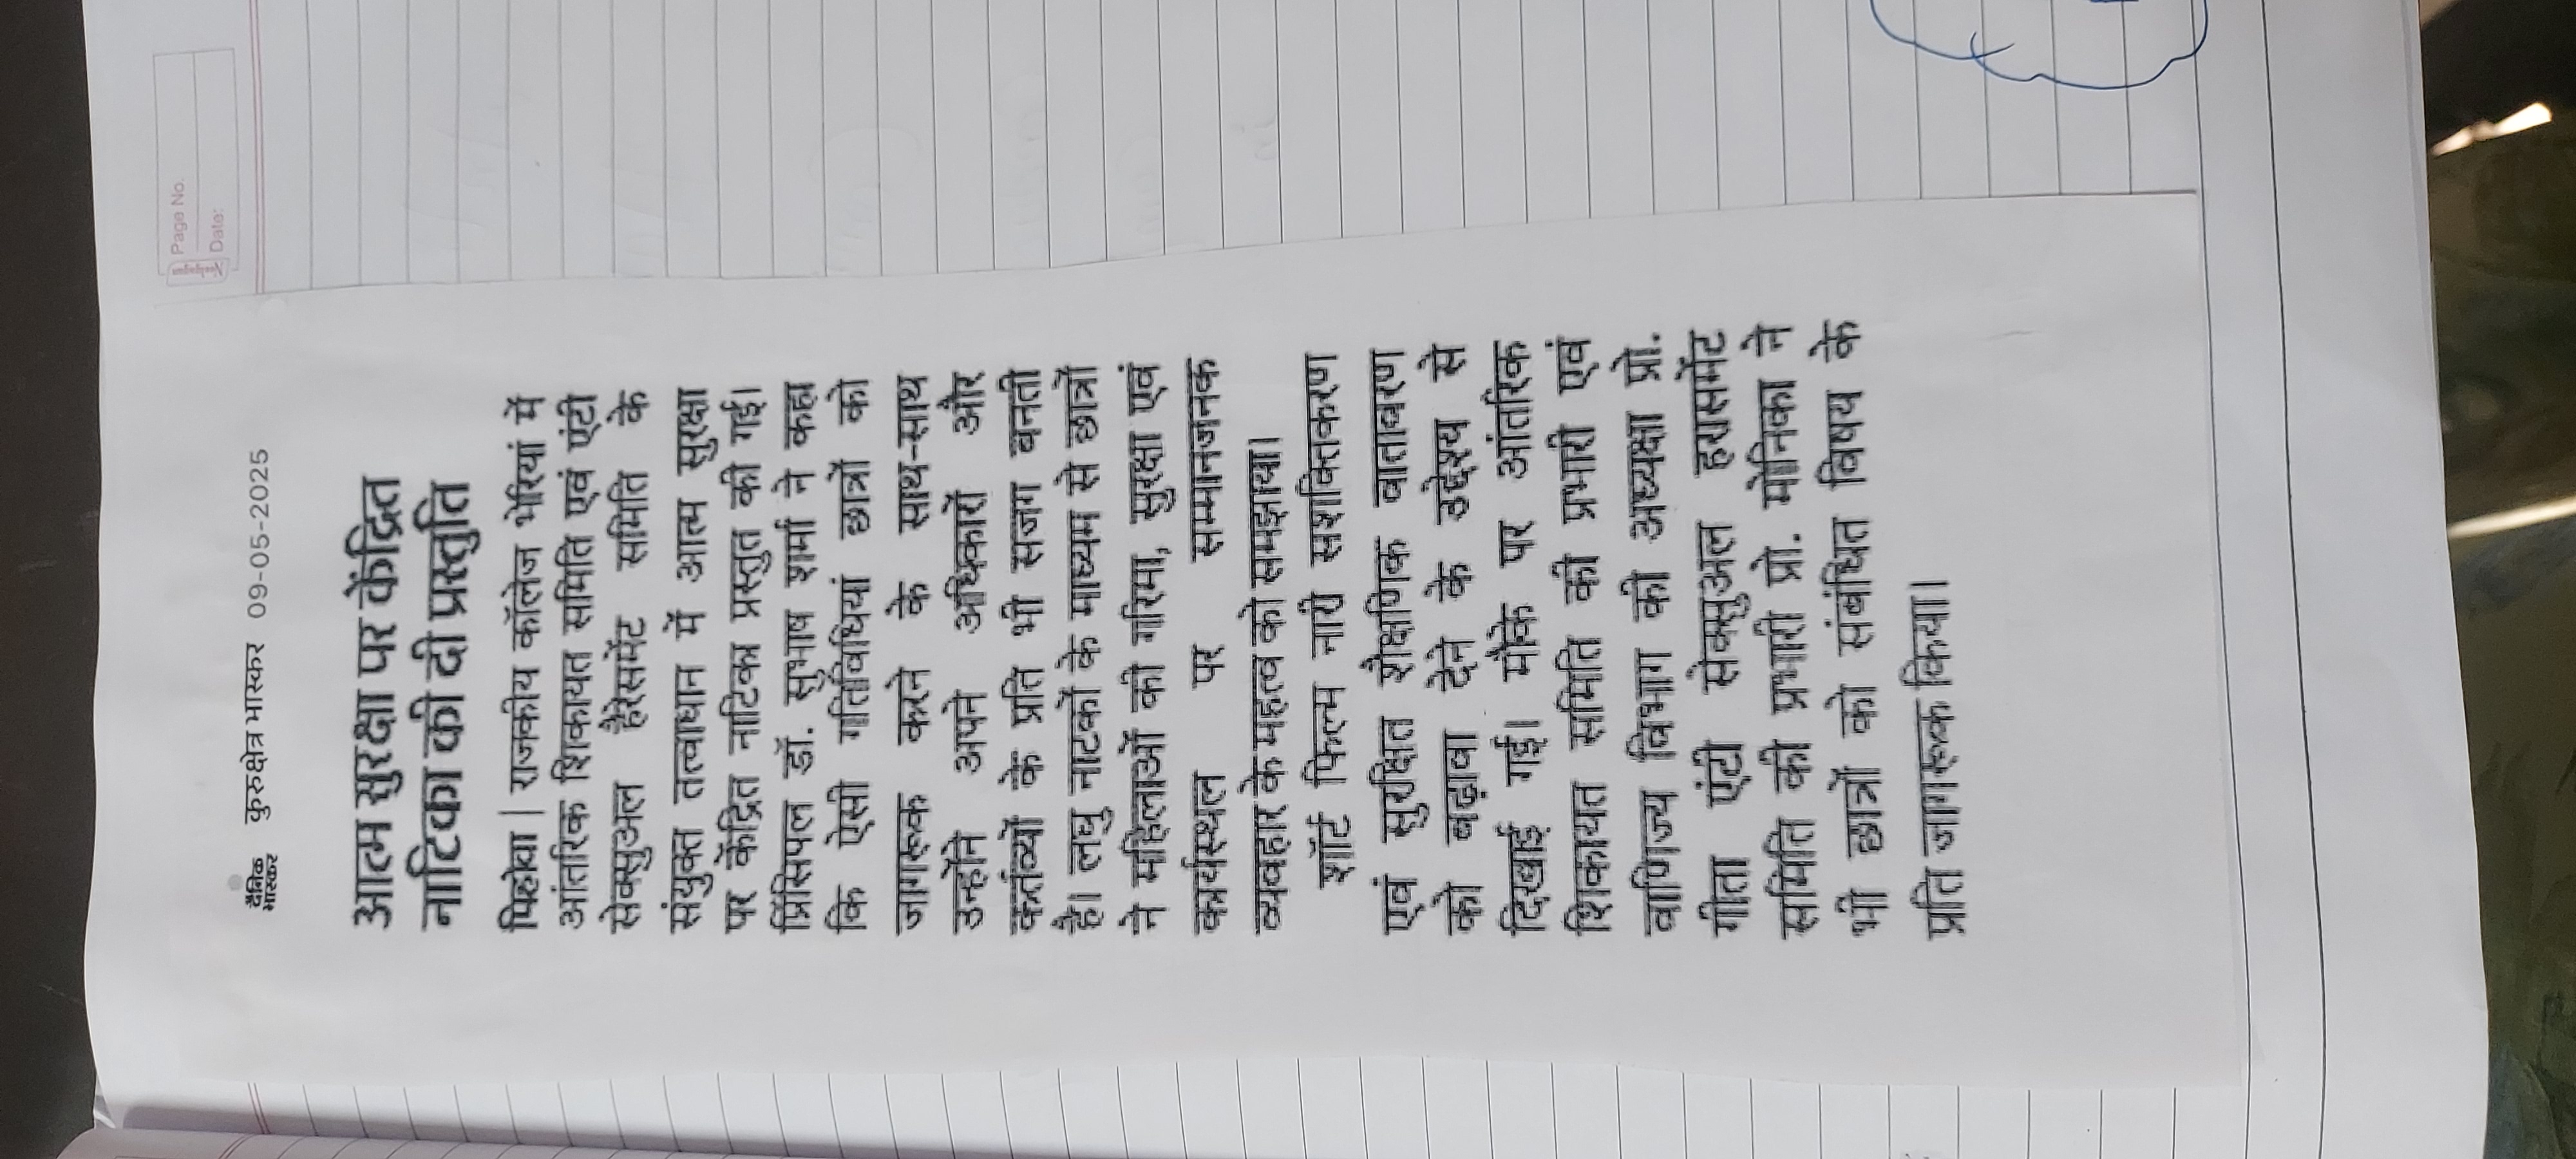 Page No.
Date:
दैनिक भास्कर कुरुक्षेत्र भास्कर 09-05-2025
आत्म सुरक्षा पर केंद्रित
नाटिका की दी प्रस्तुति
पिहोवा | राजकीय कॉलेज भेरियां में
आंतरिक शिकायत समिति एवं एंटी
सेक्सुअल हैरेसमेंट समिति के
संयुक्त तत्वाधान में आत्म सुरक्षा
पर केंद्रित नाटिका प्रस्तुत की गई।
प्रिंसिपल डॉ. सुभाष शर्मा ने कहा
कि ऐसी गतिविधियां छात्रों को
जागरूक करने के साथ-साथ
उन्होंने अपने अधिकारों और
कर्तव्यों के प्रति भी सजग बनती
है। लघु नाटकों के माध्यम से छात्रों
ने महिलाओं की गरिमा, सुरक्षा एवं
कार्यस्थल पर सम्मानजनक
व्यवहार के महत्व को समझाया।
शॉर्ट फिल्म नारी सशक्तिकरण
एवं सुरक्षित शैक्षणिक वातावरण
को बढ़ावा देने के उद्देश्य से
दिखाई गई। मौके पर आंतरिक
शिकायत समिति की प्रभारी एवं
वाणिज्य विभाग की अध्यक्षा प्रो.
गीता एंटी सेक्सुअल हरासमेंट
समिति की प्रभारी प्रो. मोनिका ने
भी छात्रों को संबंधित विषय के
प्रति जागरूक किया।